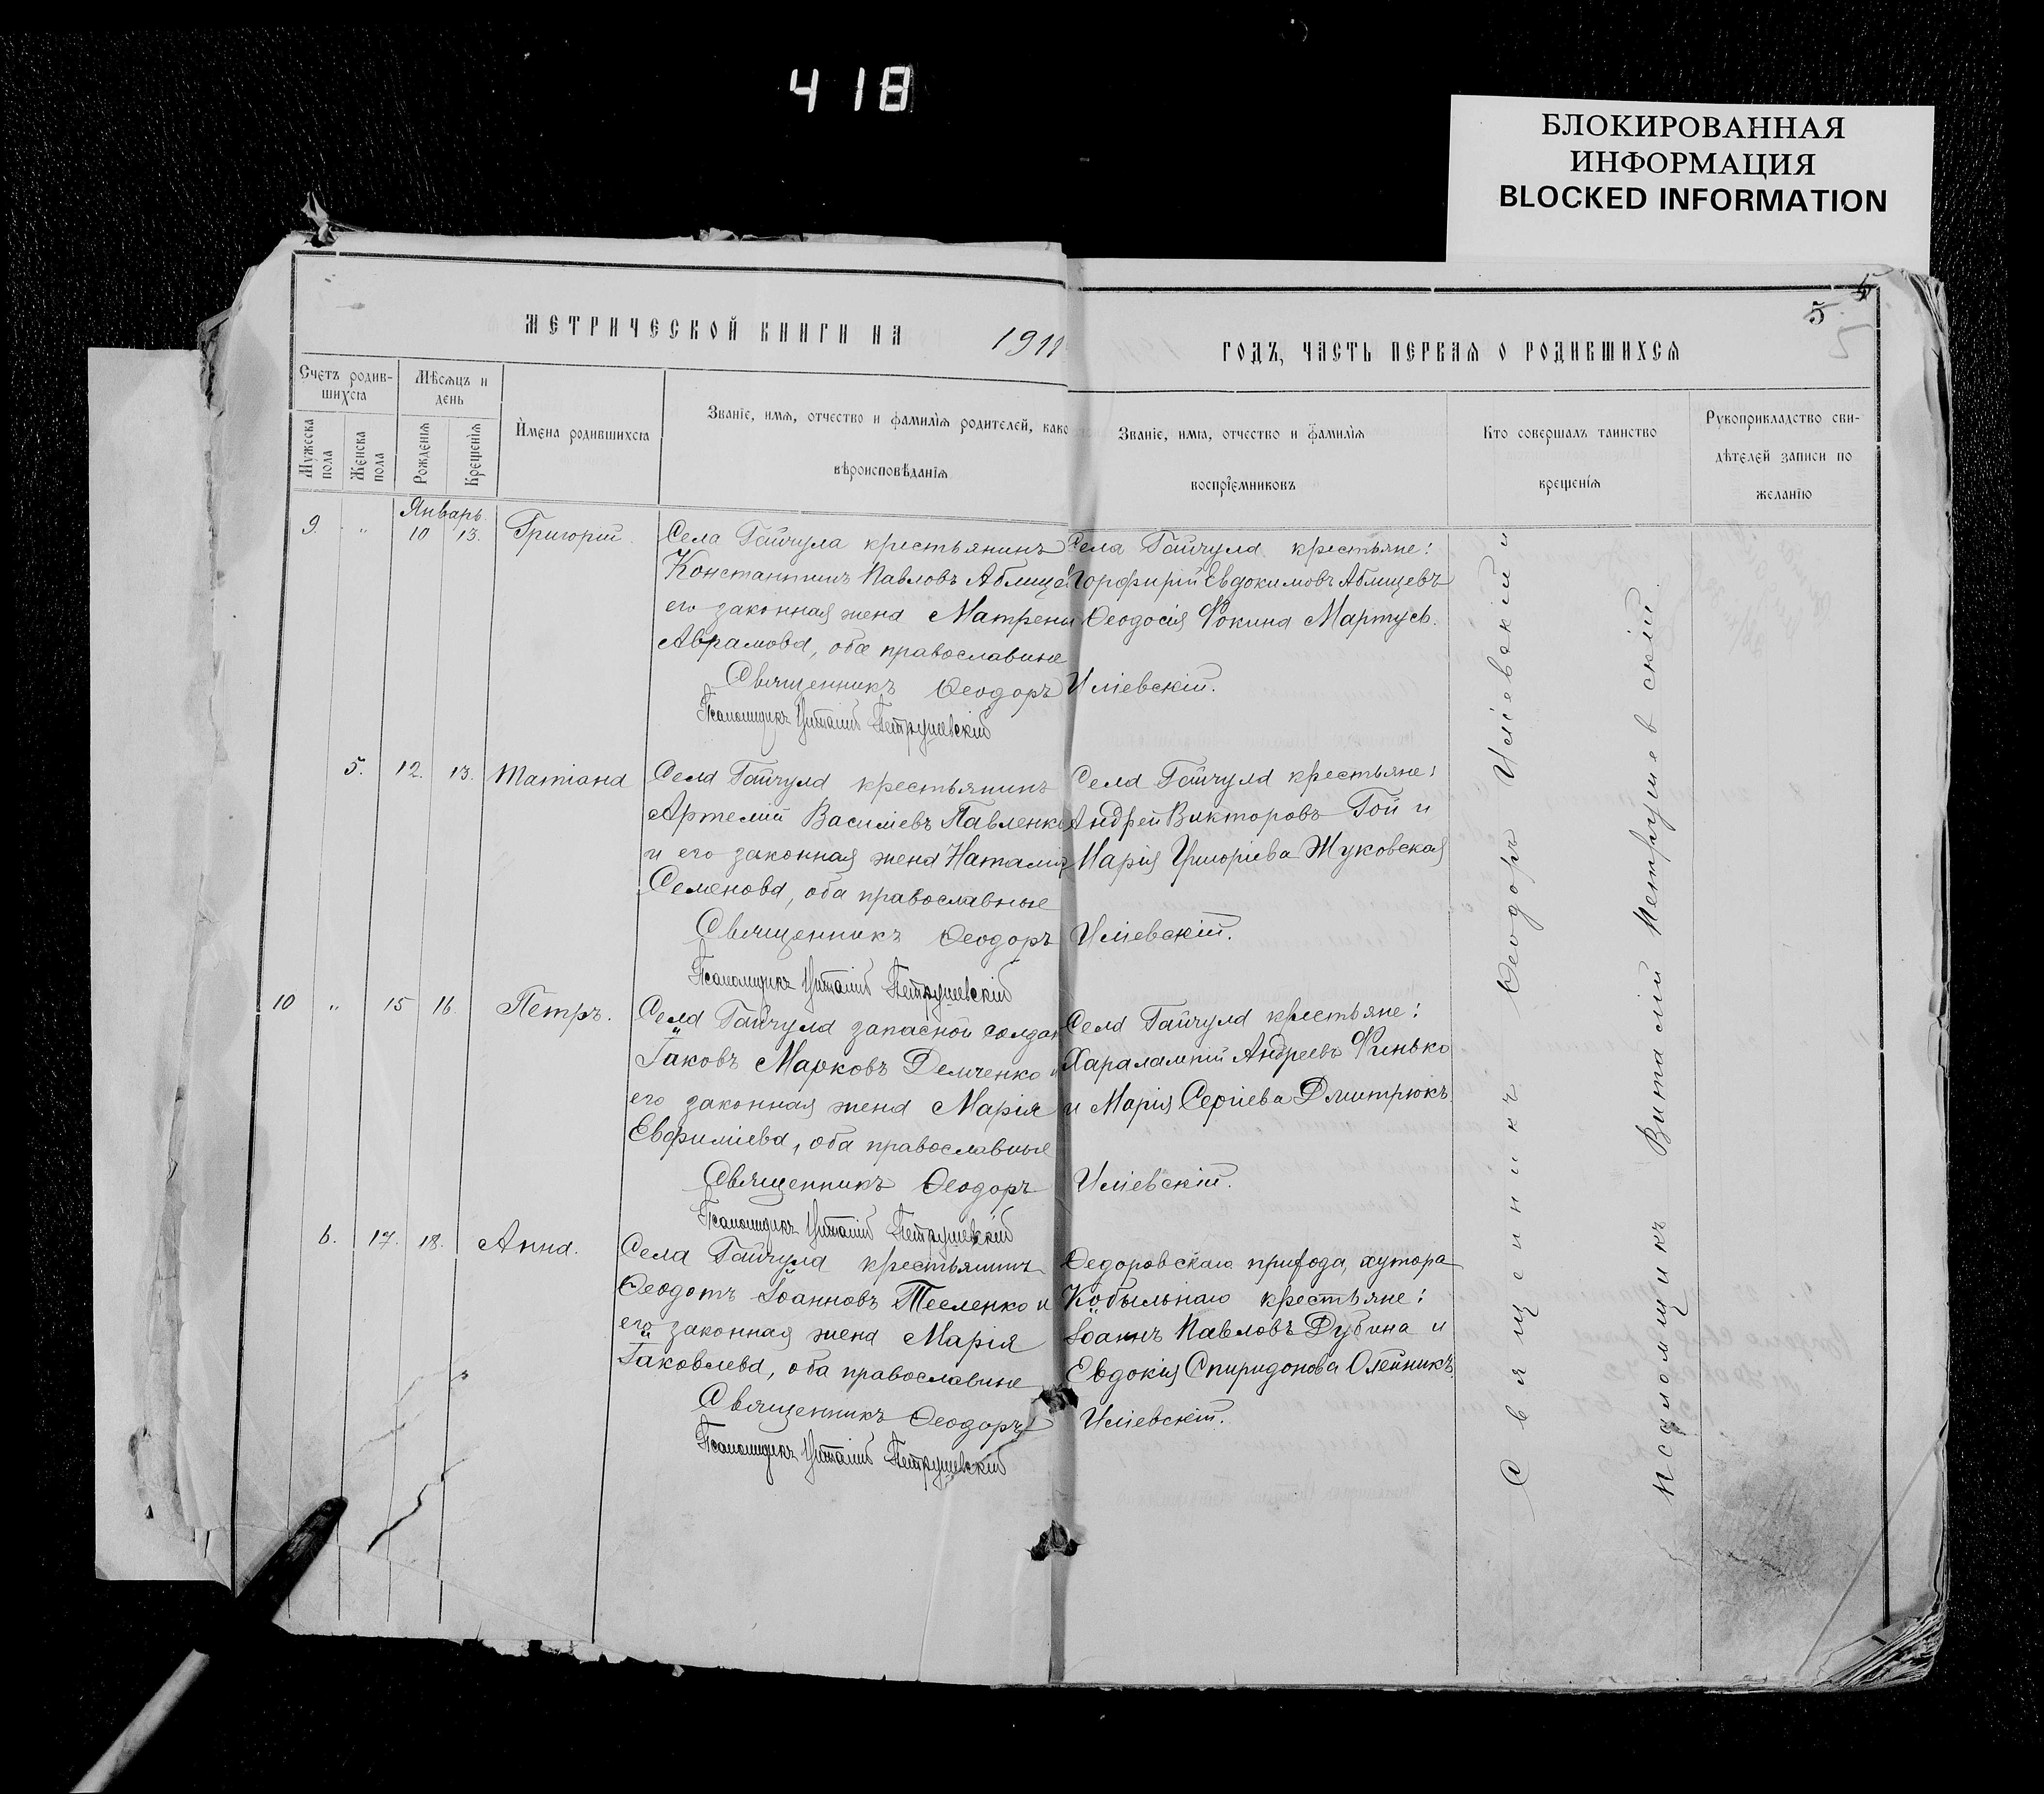 418
БЛОКИРОВАННАЯ
ИНФОРМАЦИЯ
BLOCKED INFORMATION
5
5
МЕТРИЧЕСКОЙ КНИГИ НА 1911 ГОДЪ, ЧАСТЬ ПЕРВАЯ О РОДИВШИХСЯ
Счетъ родив-
шихся
Мѣсяцъ и
день
Мужеска пола
Женска пола
Рожденія
Крещенія
Имена родившихся
Званіе, имя, отчество и фамилія родителей, како
вѣроисповѣданія
Званіе, имя, отчество и фамилія
воспріемниковъ
Кто совершалъ таинство
крещенія
Рукоприкладство сви-
дѣтелей записи по
желанію
Январь
9. " 10 13. Григорій.
Села Гайчула крестьянинъ
Константинъ Павловъ Аблице
его законная жена Матрена
Аврамова, оба православные
Села Гайчула крестьяне:
Порфирій Евдокимовъ Аблицевъ
Ѳеодосія Фокина Мартусь.
Священникъ Ѳеодоръ Иліевскій.
Псаломщикъ Виталій Петрушевскій
5. 12. 13. Татіана
Села Гайчула крестьянинъ
Артемій Василіевъ Павленко
и его законная жена Наталія
Семенова, оба православные
Села Гайчула крестьяне:
Андрей Викторовъ Гой и
Марія Григоріева Жуковская
Священникъ Ѳеодоръ Иліевскій.
Псаломщикъ Виталій Петрушевскій
10 " 15 16. Петръ.
Села Гайчула запасной солдат
Іаковъ Марковъ Демченко и
его законная жена Марія
Евфиміева, оба православные
Села Гайчула крестьяне:
Харалампій Андреевъ Финько
и Марія Сергіева Дмитрюкъ
Священникъ Ѳеодоръ Иліевскій.
Псаломщикъ Виталій Петрушевскій
6. 17. 18. Анна.
Села Гайчула крестьянинъ
Ѳеодотъ Іоанновъ Теленко и
его законная жена Марія
Іаковлева, оба православные
Ѳедоровскаго прихода, хутора
Кобыльнаго крестьяне:
Іоаннъ Павловъ Дубина и
Евдокія Спиридонова Олейникъ
Священникъ Ѳеодоръ Иліевскій.
Псаломщикъ Виталій Петрушевскій
Священникъ Ѳеодоръ Иліевскій и
Псаломщикъ Виталій Петрушевскій.